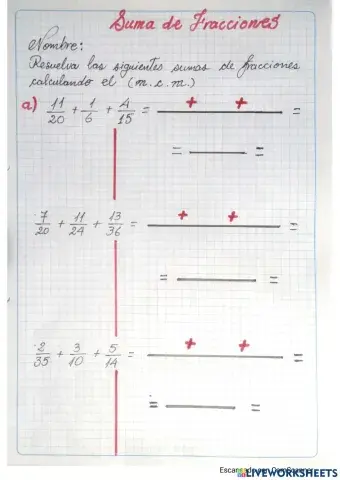 Suma de Fracciones
Nombre:
Resuelva las siguientes sumas de fracciones
calculando el (m.c.m.)
a) 11/20 + 1/6 + 4/15 = + + =
= =
7/20 + 11/24 + 13/36 = + + =
= =
2/35 + 3/10 + 5/14 = + + =
= =
LIVEWORKSHEETS